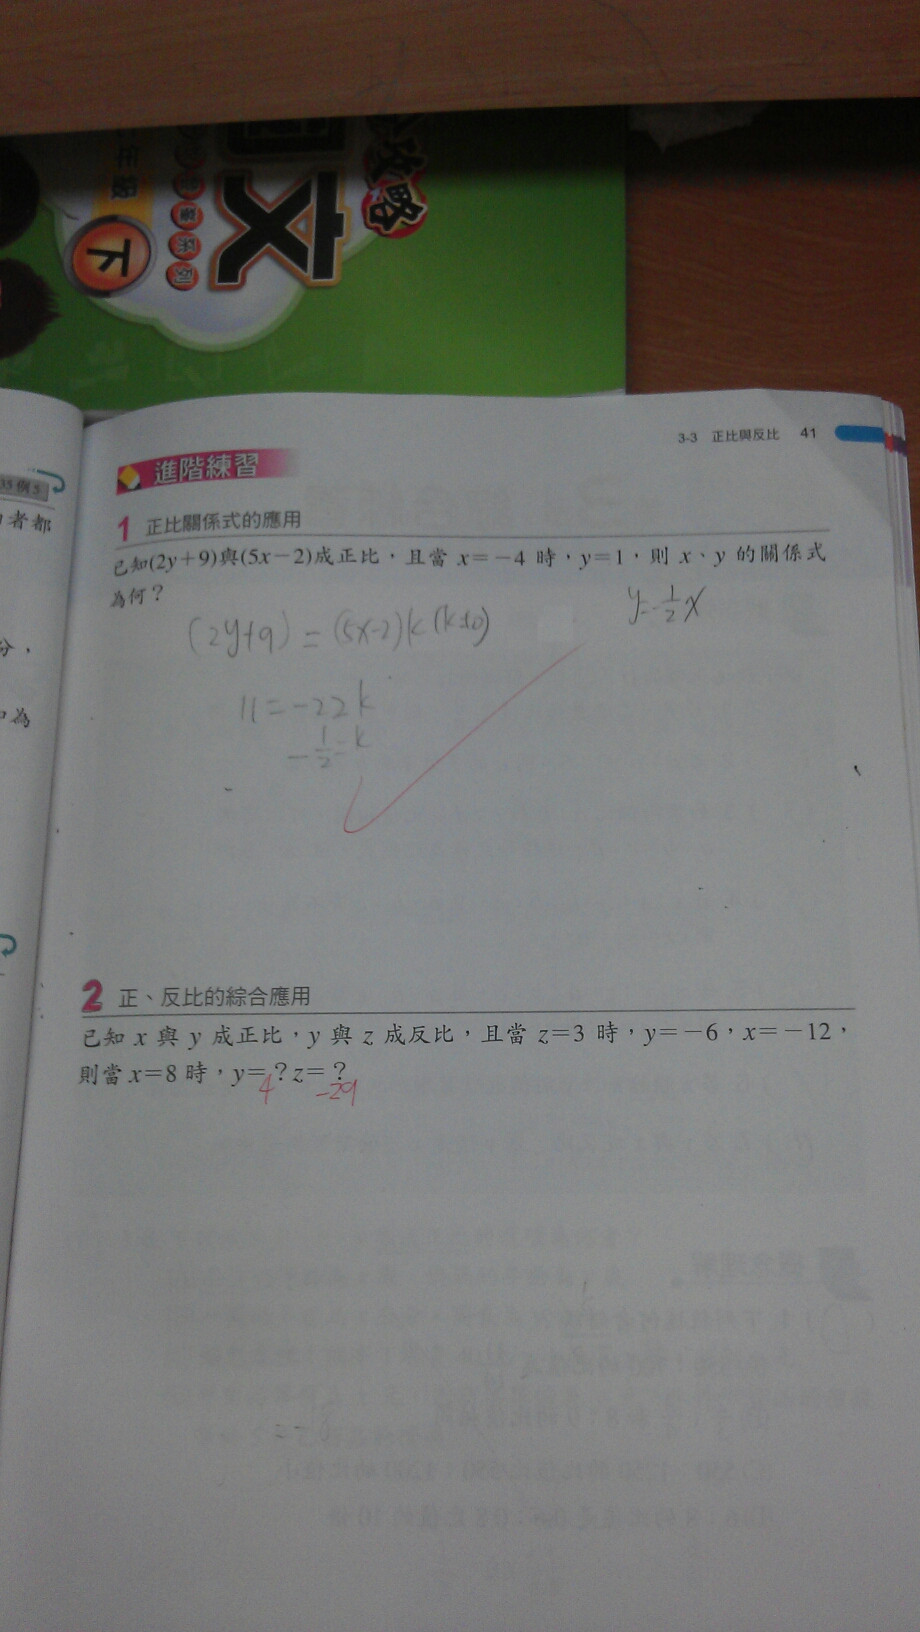 攻略
文
年級
下
系列
3-3 正比與反比 41
進階練習
35例5
者都
1 正比關係式的應用
已知(2y+9)與(5x-2)成正比,且當 x=-4 時,y=1,則 x、y 的關係式
為何?
y=-1/2x
(2y+9)=(5x-2)k(k≠0)
11=-22k
-1/2=k
分,
為
2 正、反比的綜合應用
已知 x 與 y 成正比,y 與 z 成反比,且當 z=3 時,y=-6,x=-12,
則當 x=8 時,y=?z=?
4 -29